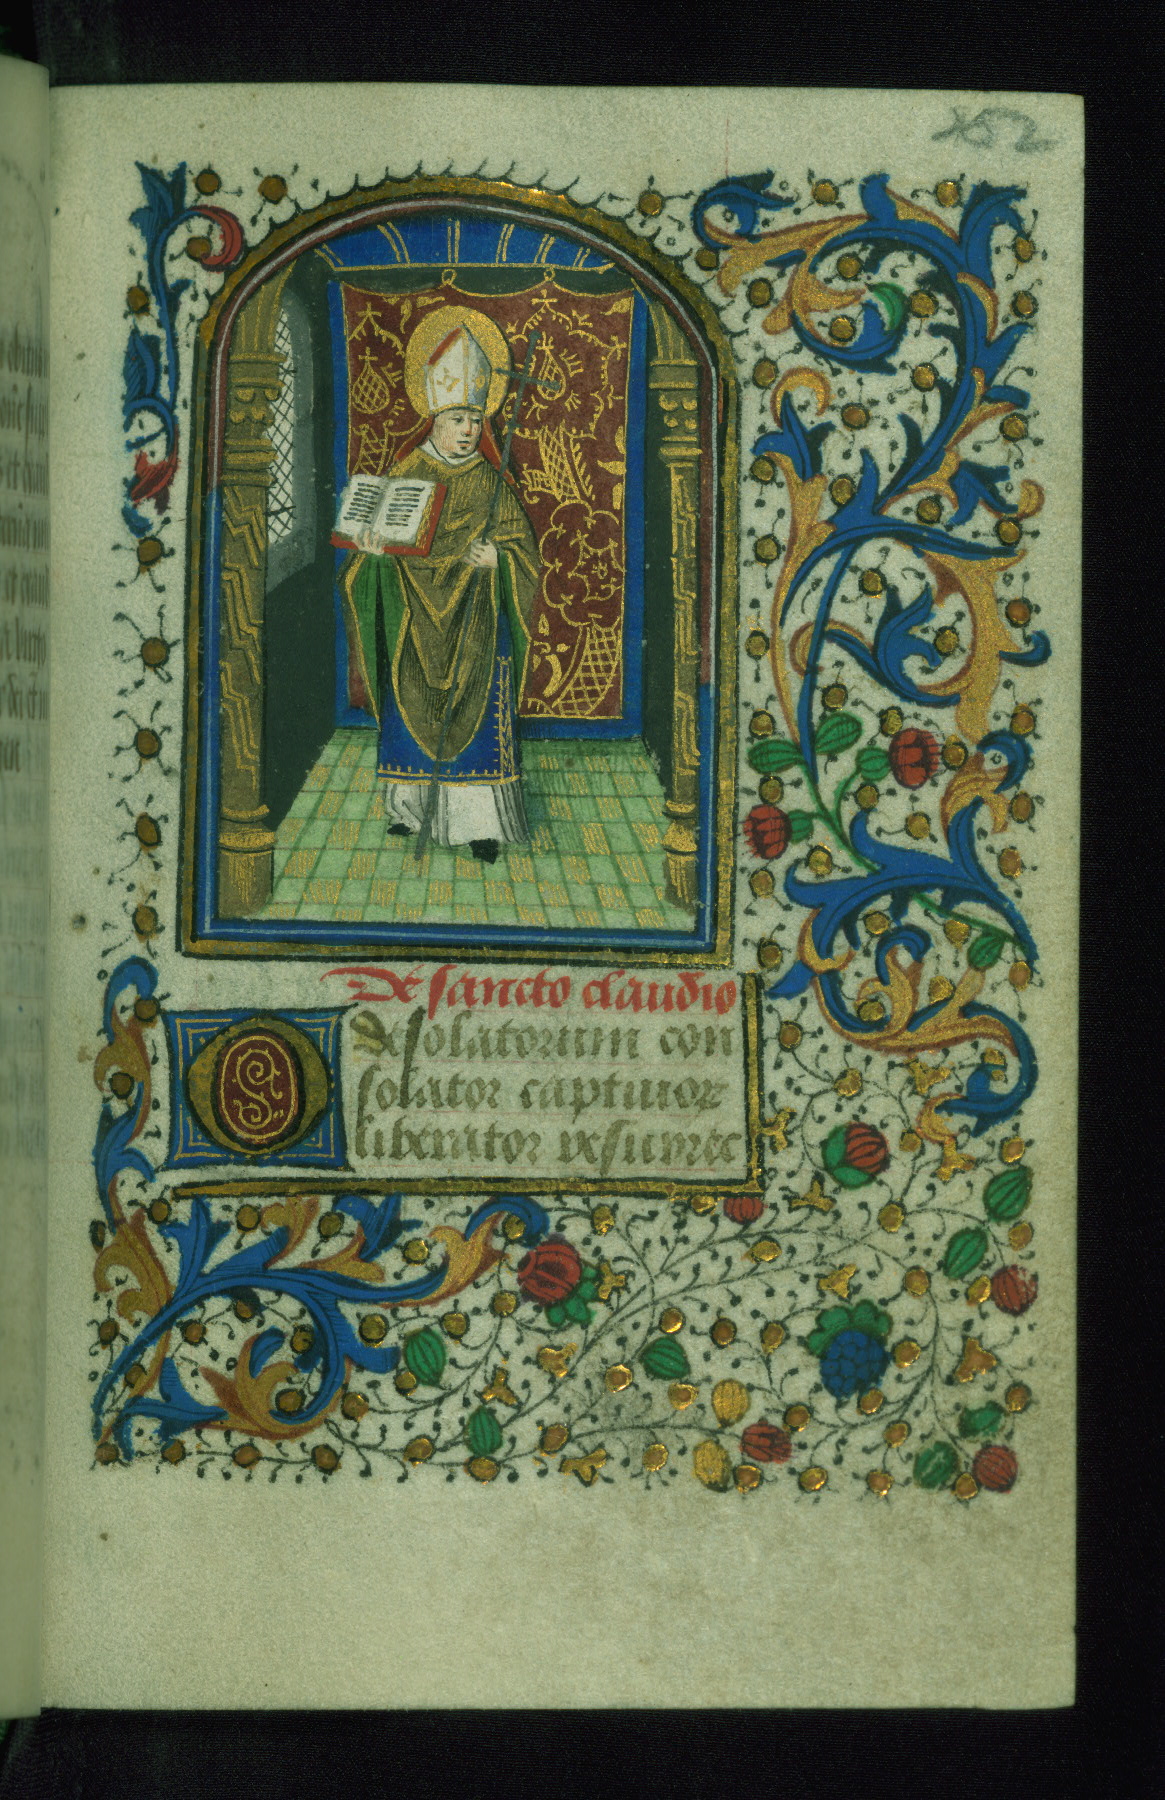 152
De sancto claudio
O desolatorum con
solator captiuor
liberator resurrec